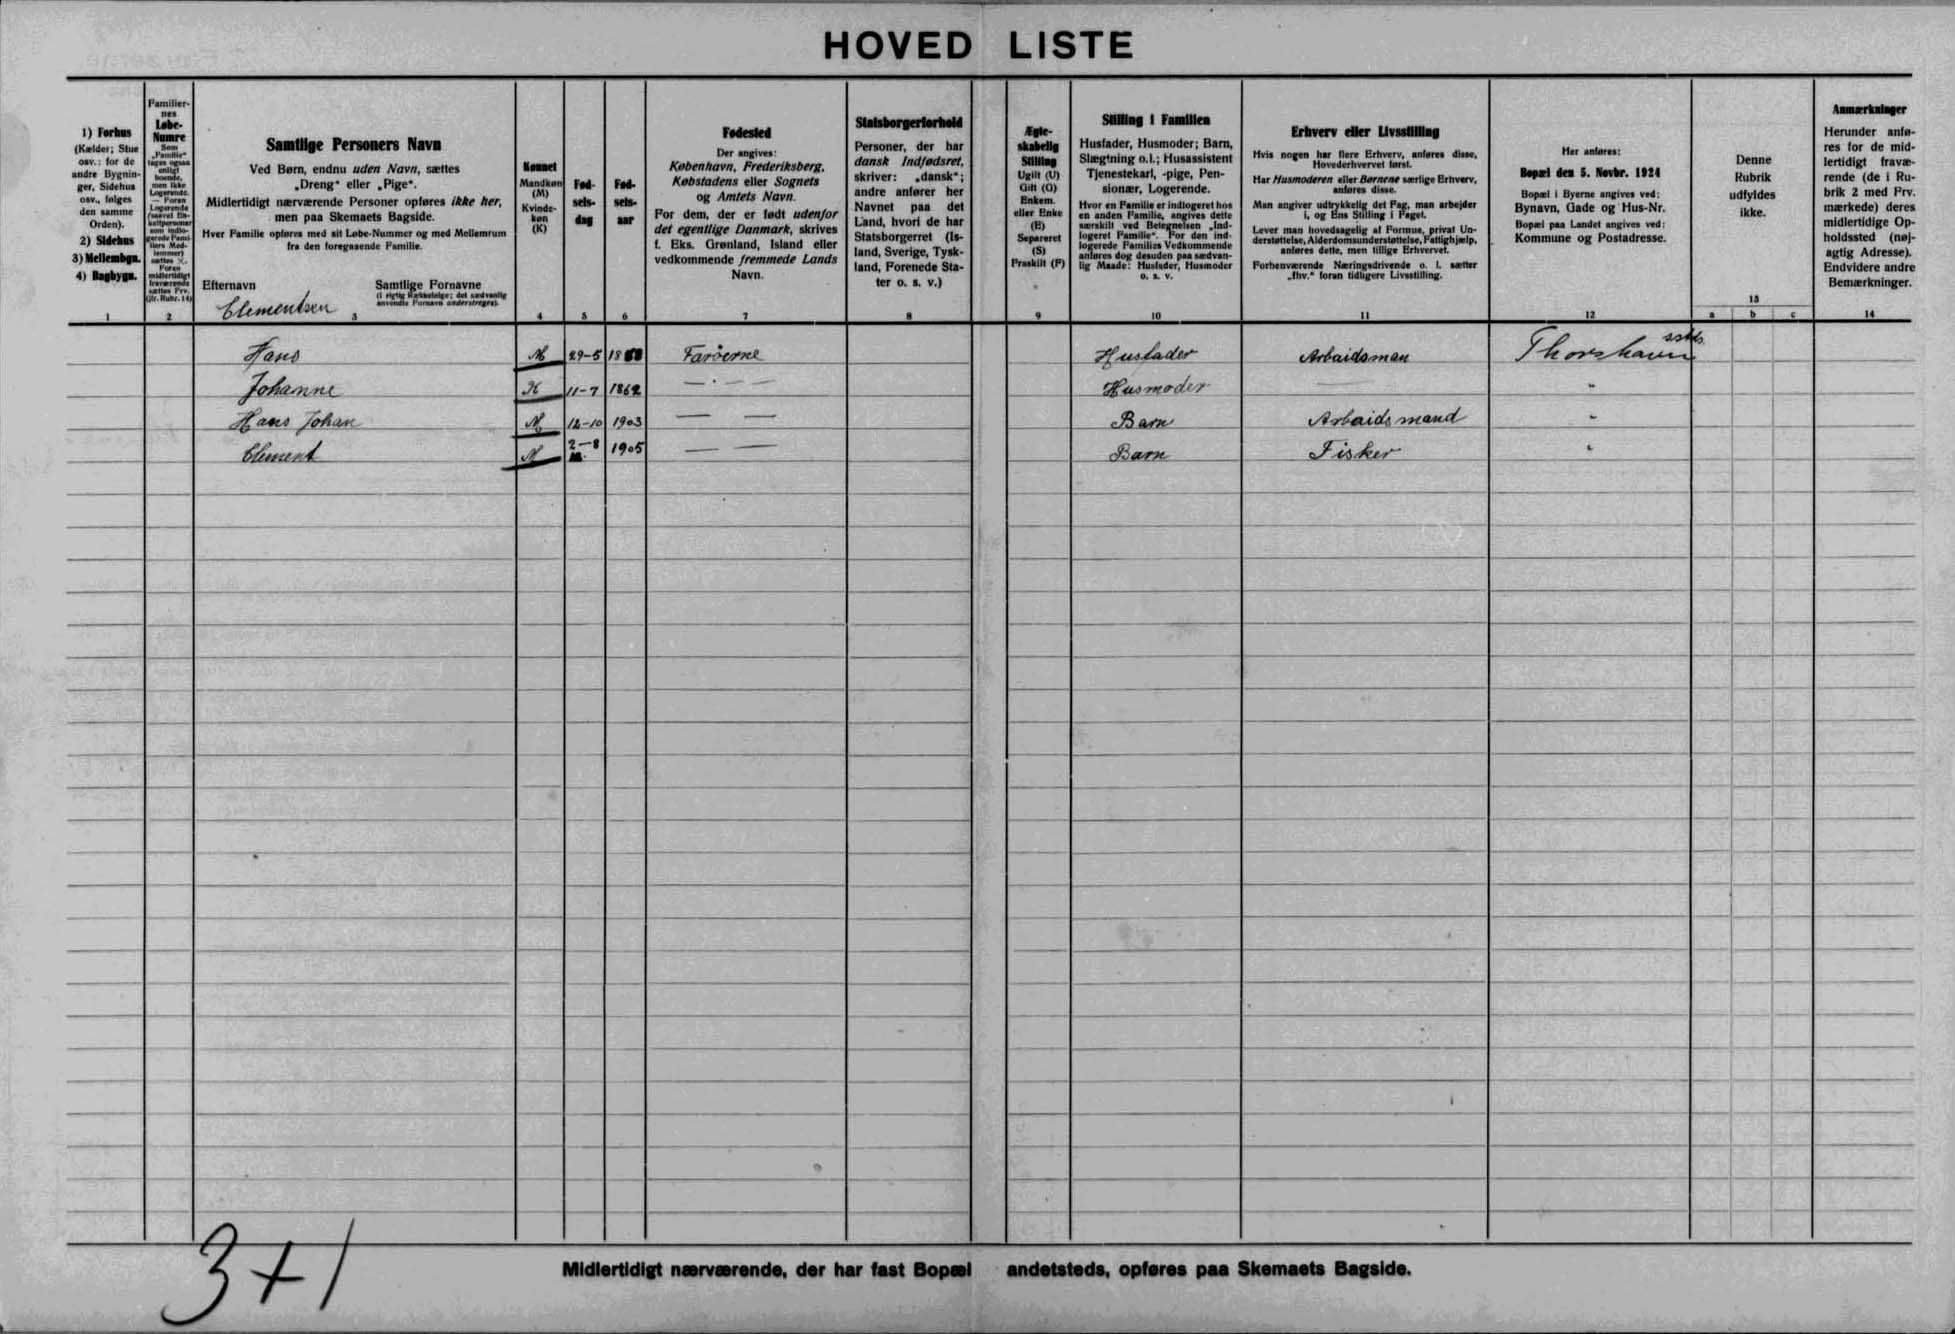 HOVED LISTE
1) Forhus
(Kælder; Stue
osv.: for de
andre Bygnin-
ger, Sidehus
osv., følges
den samme
Orden).
2) Sidehus
3) Mellembgn.
4) Bagbygn.
1
Familier-
nes
Løbe-
Numre
Som
„Familie“
tages ogsaa
enligt
boende,
men ikke
Logerende.
— Foran
Logerende
2
Samtlige Personers Navn
Ved Børn, endnu uden Navn, sættes
„Dreng“ eller „Pige“.
Midlertidigt nærværende Personer opføres ikke her,
men paa Skemaets Bagside.
Hver Familie opføres med sit Løbe-Nummer og med Mellemrum
fra den foregaaende Familie.
Efternavn
Samtlige Fornavne
(i rigtig Rækkefølge; det sædvanlig
anvendte Fornavn understreges).
Clementsen
3
Kønnet
Mandkøn
(M)
Kvinde-
køn
(K)
4
Fød-
sels-
dag
5
Fød-
sels-
aar
6
Fødested
Der angives:
København, Frederiksberg,
Købstadens eller Sognets
og Amtets Navn.
For dem, der er født udenfor
det egentlige Danmark, skrives
f. Eks. Grønland, Island eller
vedkommende fremmede Lands
Navn.
7
Statsborgerforhold
Personer, der har
dansk Indfødsret,
skriver: „dansk“;
andre anfører her
Navnet paa det
Land, hvori de har
Statsborgerret (Is-
land, Sverige, Tysk-
land, Forenede Sta-
ter o. s. v.)
8
Ægte-
skabelig
Stilling
Ugift (U)
Gift (G)
Enkem.
eller Enke
(E)
Separeret
(S)
Fraskilt (F)
9
Stilling i Familien
Husfader, Husmoder; Barn,
Slægtning o.l.; Husassistent
Tjenestekarl, -pige, Pen-
sionær, Logerende.
Hvor en Familie er indlogeret hos
en anden Familie, angives dette
særskilt ved Betegnelsen „Ind-
logeret Familie“. For den ind-
logerede Families Vedkommende
anføres dog desuden paa sædvan-
lig Maade: Husfader, Husmoder
o. s. v.
10
Erhverv eller Livsstilling
Hvis nogen har flere Erhverv, anføres disse,
Hovederhvervet først.
Har Husmoderen eller Børnene særlige Erhverv,
anføres disse.
Man angiver udtrykkelig det Fag, man arbejder
i, og Ens Stilling i Faget.
Lever man hovedsagelig af Formue, privat Un-
derstøttelse, Alderdomsunderstøttelse, Fattighjælp,
anføres dette, men tillige Erhvervet.
Forhenværende Næringsdrivende o. l. sætter
„fhv.“ foran tidligere Livsstilling.
11
Her anføres:
Bopæl den 5. Novbr. 1924
Bopæl i Byerne angives ved:
Bynavn, Gade og Hus-Nr.
Bopæl paa Landet angives ved:
Kommune og Postadresse.
12
Denne
Rubrik
udfyldes
ikke.
13
a b c
Anmærkninger
Herunder anfø-
res for de mid-
lertidigt fravæ-
rende (de i Ru-
brik 2 med Frv.
mærkede) deres
midlertidige Op-
holdssted (nøj-
agtig Adresse).
Endvidere andre
Bemærkninger.
14
Hans M 29-5 Farøerne Husfader Arbaidsman Thorshavn
Johanne K 11-7 1862 — · — — Husmoder — "
Hans Johan M 12-10 1903 — — Barn Arbaidsmand "
Clement M 2-8 1905 — — Barn Fisker "
3+1
Midlertidigt nærværende, der har fast Bopæl andetsteds, opføres paa Skemaets Bagside.